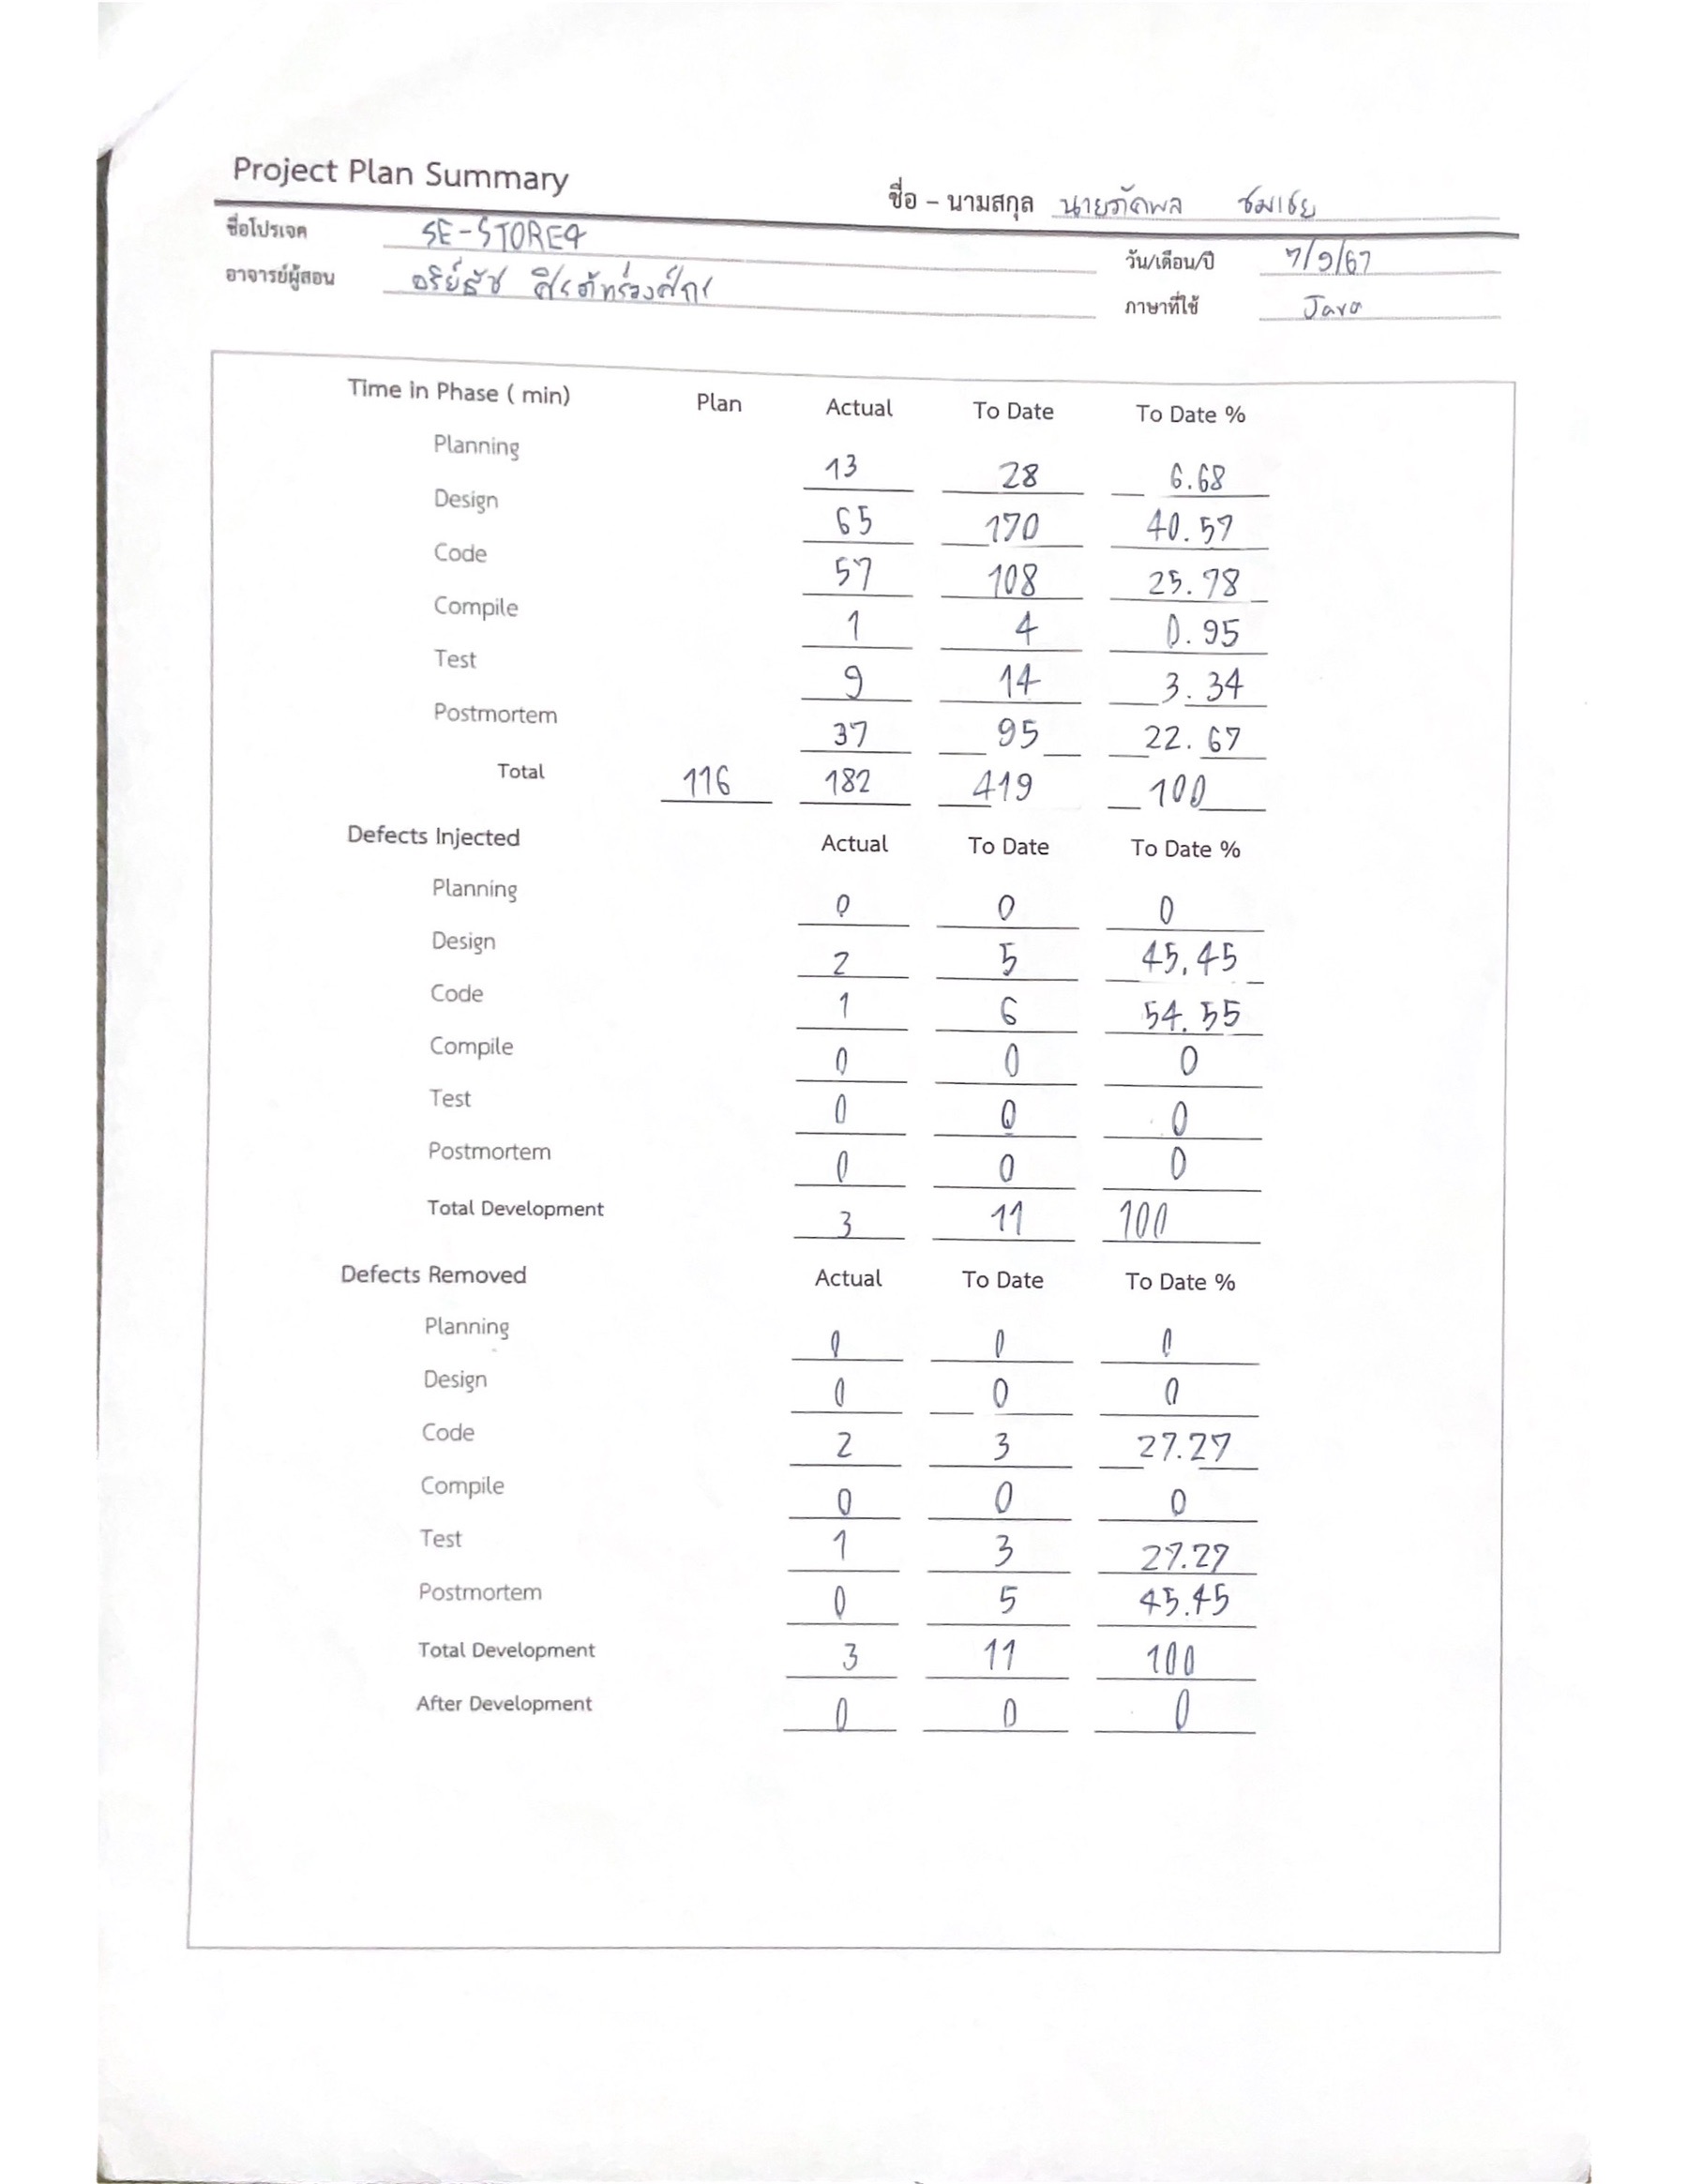 Project Plan Summary
ชื่อ – นามสกุล นายภัคพล ชมเชย
ชื่อโปรเจค SE-STORE4
วัน/เดือน/ปี 7/9/67
อาจารย์ผู้สอน
ภาษาที่ใช้ Java
Time in Phase ( min) Plan Actual To Date To Date %
Planning 13 28 6.68
Design 65 170 40.57
Code 57 108 25.78
Compile 1 4 0.95
Test 9 14 3.34
Postmortem 37 95 22.67
Total 116 182 419 100
Defects Injected Actual To Date To Date %
Planning 0 0 0
Design 2 5 45.45
Code 1 6 54.55
Compile 0 0 0
Test 0 0 0
Postmortem 0 0 0
Total Development 3 11 100
Defects Removed Actual To Date To Date %
Planning 0 0 0
Design 0 0 0
Code 2 3 27.27
Compile 0 0 0
Test 1 3 27.27
Postmortem 0 5 45.45
Total Development 3 11 100
After Development 0 0 0